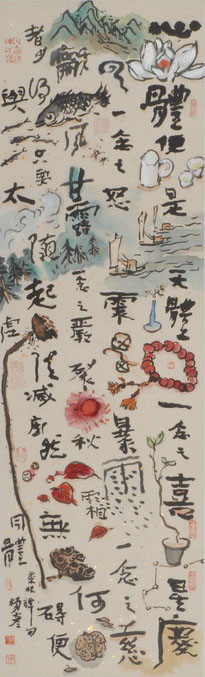 心體便是天體一念之喜星慶
雲一念之怒震暴雨一念之慈
龢風甘露一念之嚴烈秋霜何
者少得只要隨起隨滅廓然無礙便
與太虛同體
菜根譚句